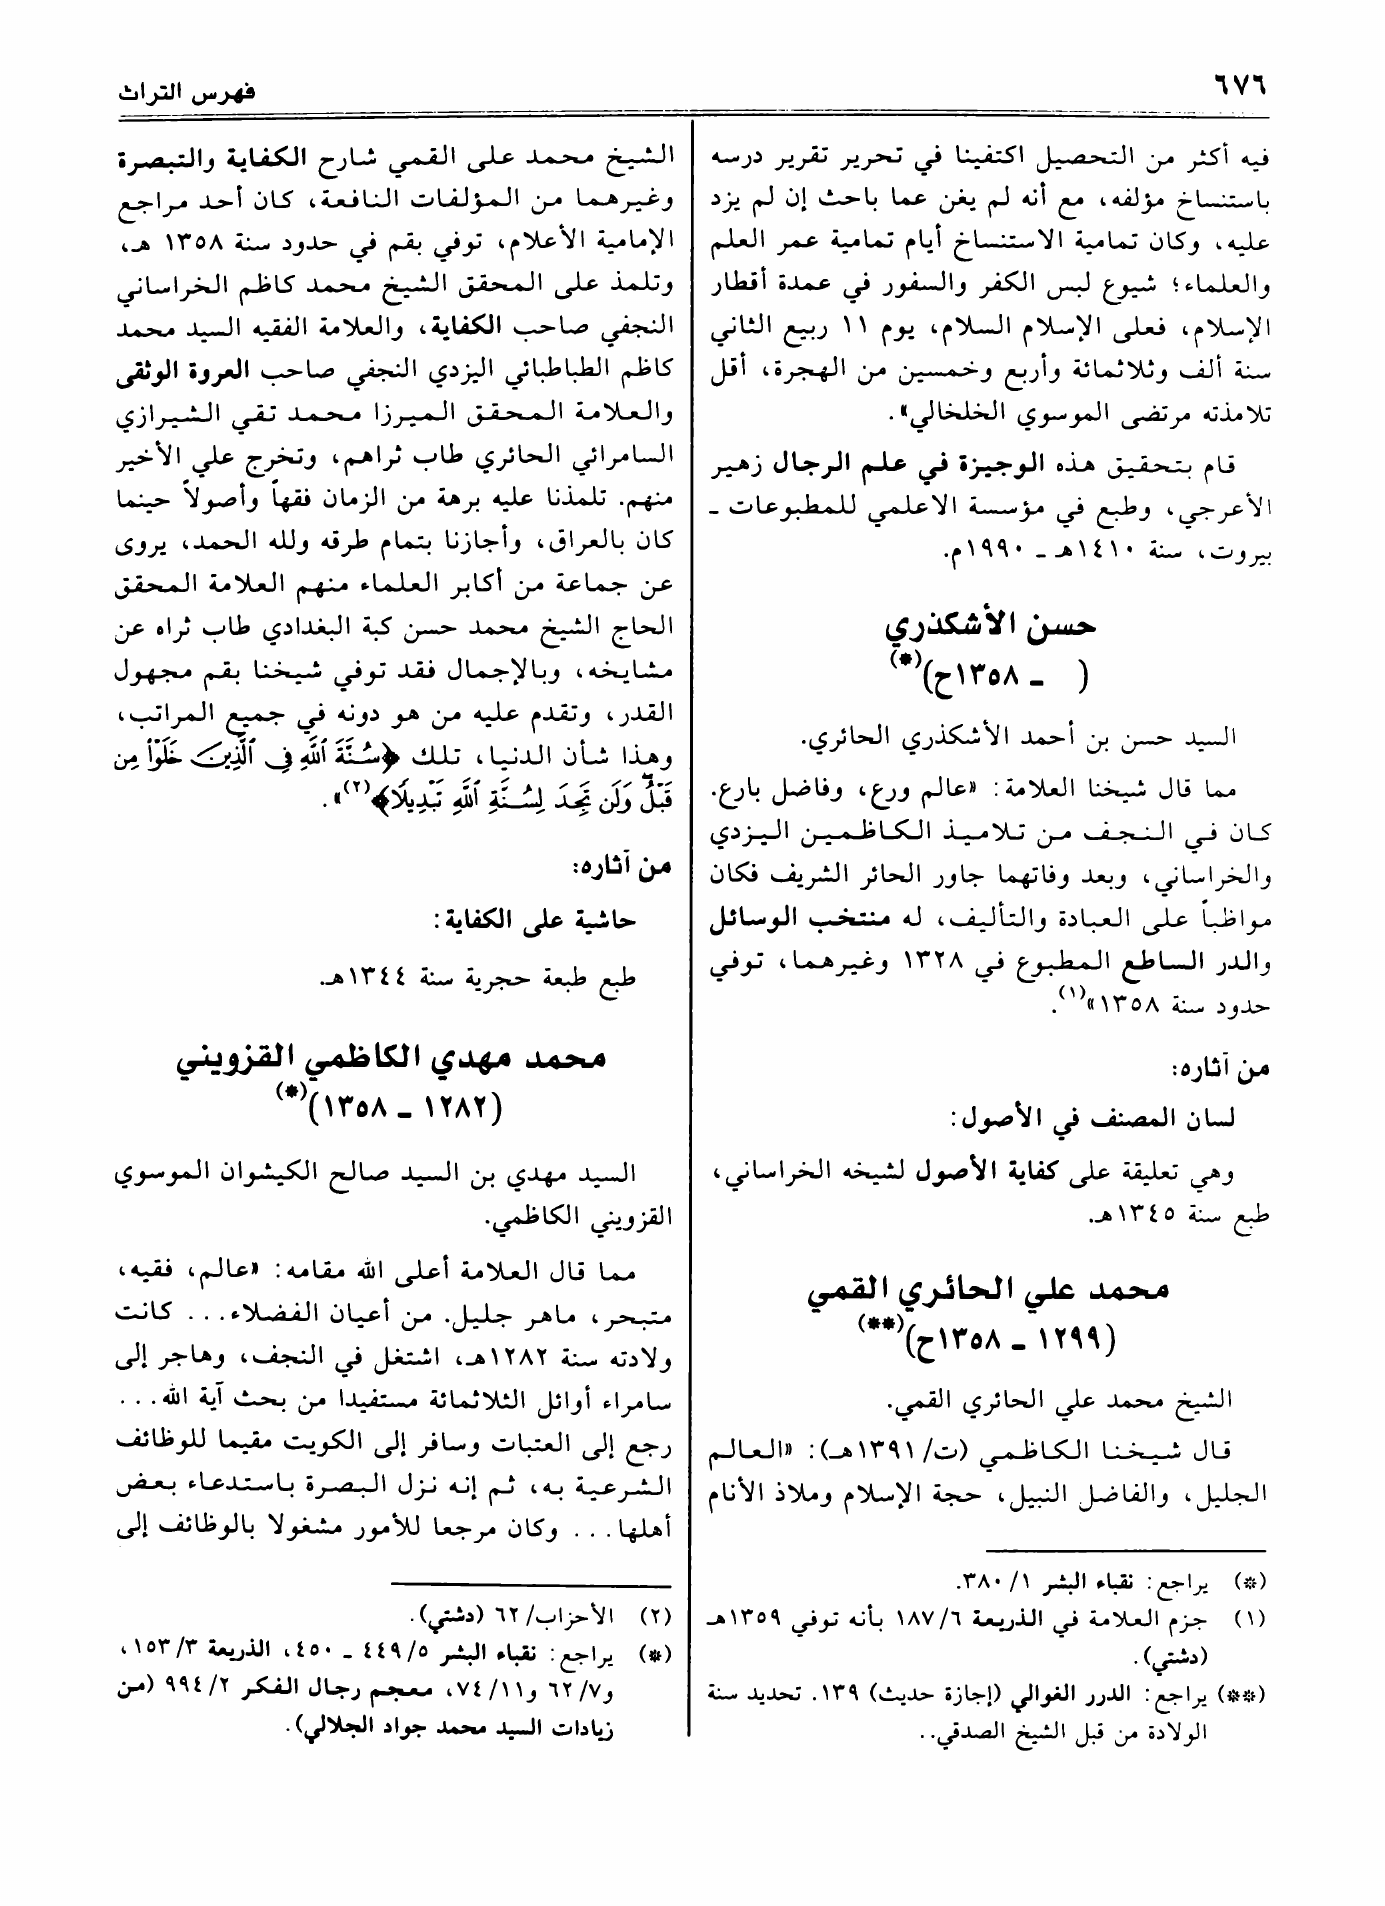 ٦٧٦
فهرس التراث
فيه أكثر من التحصيل اكتفينا في تحرير تقرير درسه
باستنساخ مؤلفه، مع أنه لم يغن عما باحث إن لم يزد
عليه، وكان تمامية الاستنساخ أيام تمامية عمر العلم
والعلماء؛ شيوع لبس الكفر والسفور في عمدة أقطار
الإسلام، فعلى الإسلام السلام، يوم ١١ ربيع الثاني
سنة ألف وثلاثمائة وأربع وخمسين من الهجرة، أقل
تلامذته مرتضى الموسوي الخلخالي».
قام بتحقيق هذه الوجيزة في علم الرجال زهير
الأعرجي، وطبع في مؤسسة الاعلمي للمطبوعات ـ
بيروت، سنة ١٤١٠هـ ـ ١٩٩٠م.
حسن الأشكذري
( ـ ١٣٥٨ح)(*)
السيد حسن بن أحمد الأشكذري الحائري.
مما قال شيخنا العلامة: «عالم ورع، وفاضل بارع.
كان في النجف من تلاميذ الكاظمين اليزدي
والخراساني، وبعد وفاتهما جاور الحائر الشريف فكان
مواظباً على العبادة والتأليف، له منتخب الوسائل
والدر الساطع المطبوع في ١٣٢٨ وغيرهما، توفي
حدود سنة ١٣٥٨»(١).
من آثاره:
لسان المصنف في الأصول:
وهي تعليقة على كفاية الأصول لشيخه الخراساني،
طبع سنة ١٣٤٥هـ.
محمد علي الحائري القمي
(١٢٩٩ ـ ١٣٥٨ح)(**)
الشيخ محمد علي الحائري القمي.
قال شيخنا الكاظمي (ت/١٣٩١هـ): «العالم
الجليل، والفاضل النبيل، حجة الإسلام وملاذ الأنام
(*) يراجع: نقباء البشر ١/ ٣٨٠.
(١) جزم العلامة في الذريعة ٦/ ١٨٧ بأنه توفي ١٣٥٩هـ
(دشتي).
(**) يراجع: الدرر الغوالي (إجازة حديث) ١٣٩. تحديد سنة
الولادة من قبل الشيخ الصدقي..
الشيخ محمد على القمي شارح الكفاية والتبصرة
وغيرهما من المؤلفات النافعة، كان أحد مراجع
الإمامية الأعلام، توفي بقم في حدود سنة ١٣٥٨ هـ،
وتلمذ على المحقق الشيخ محمد كاظم الخراساني
النجفي صاحب الكفاية، والعلامة الفقيه السيد محمد
كاظم الطباطبائي اليزدي النجفي صاحب العروة الوثقى
والعلامة المحقق الميرزا محمد تقي الشيرازي
السامرائي الحائري طاب ثراهم، وتخرج علي الأخير
منهم. تلمذنا عليه برهة من الزمان فقهاً وأصولاً حينما
كان بالعراق، وأجازنا بتمام طرقه ولله الحمد، يروى
عن جماعة من أكابر العلماء منهم العلامة المحقق
الحاج الشيخ محمد حسن كبة البغدادي طاب ثراه عن
مشايخه، وبالإجمال فقد توفي شيخنا بقم مجهول
القدر، وتقدم عليه من هو دونه في جميع المراتب،
وهذا شأن الدنيا، تلك ﴿سُنَّةَ ٱللَّهِ فِي ٱلَّذِينَ خَلَوْا۟ مِن
قَبْلُ وَلَن تَجِدَ لِسُنَّةِ ٱللَّهِ تَبْدِيلًا﴾(٢)».
من آثاره:
حاشية على الكفاية:
طبع طبعة حجرية سنة ١٣٤٤هـ.
محمد مهدي الكاظمي القزويني
(١٢٨٢ ـ ١٣٥٨)(*)
السيد مهدي بن السيد صالح الكيشوان الموسوي
القزويني الكاظمي.
مما قال العلامة أعلى الله مقامه: «عالم، فقيه،
متبحر، ماهر جليل. من أعيان الفضلاء... كانت
ولادته سنة ١٢٨٢هـ، اشتغل في النجف، وهاجر إلى
سامراء أوائل الثلاثمائة مستفيدا من بحث آية الله...
رجع إلى العتبات وسافر إلى الكويت مقيما للوظائف
الشرعية به، ثم إنه نزل البصرة باستدعاء بعض
أهلها... وكان مرجعا للأمور مشغولا بالوظائف إلى
(٢) الأحزاب/ ٦٢ (دشتي).
(*) يراجع: نقباء البشر ٥/ ٤٤٩ ـ ٤٥٠، الذريعة ٣/ ١٥٣،
و٧/ ٦٢ و١١/ ٧٤، معجم رجال الفكر ٢/ ٩٩٤ (من
زيادات السيد محمد جواد الجلالي).